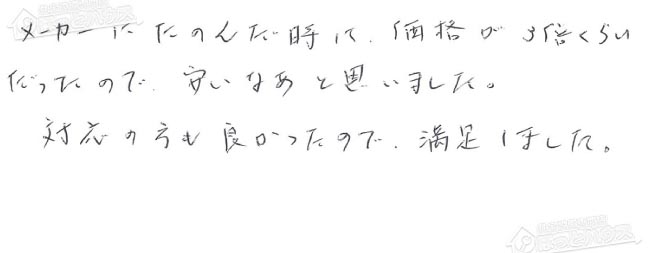 メーカーにたのんだ時は、価格が3倍くらい
だったので、安いなあと思いました。
対応の方も良かったので、満足しました。